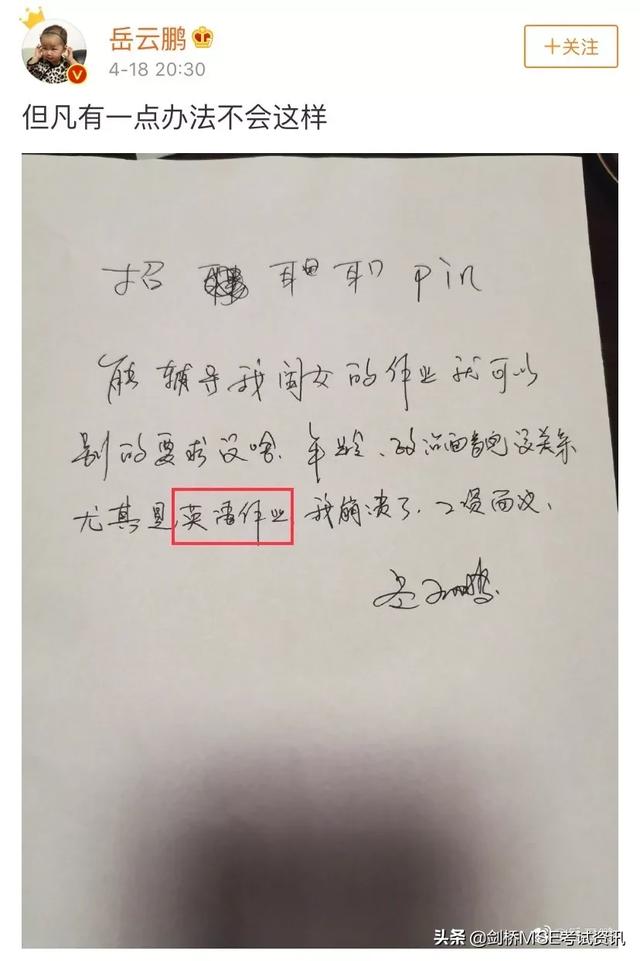 岳云鹏
4-18 20:30
+关注
但凡有一点办法不会这样
招 耳 职 pin
能辅导我闺女的作业就可以
别的要求没啥、年龄、政治面貌没关系
尤其是英语作业,我崩溃了、工资面议、
岳云鹏
头条 @剑桥MSE考试资讯